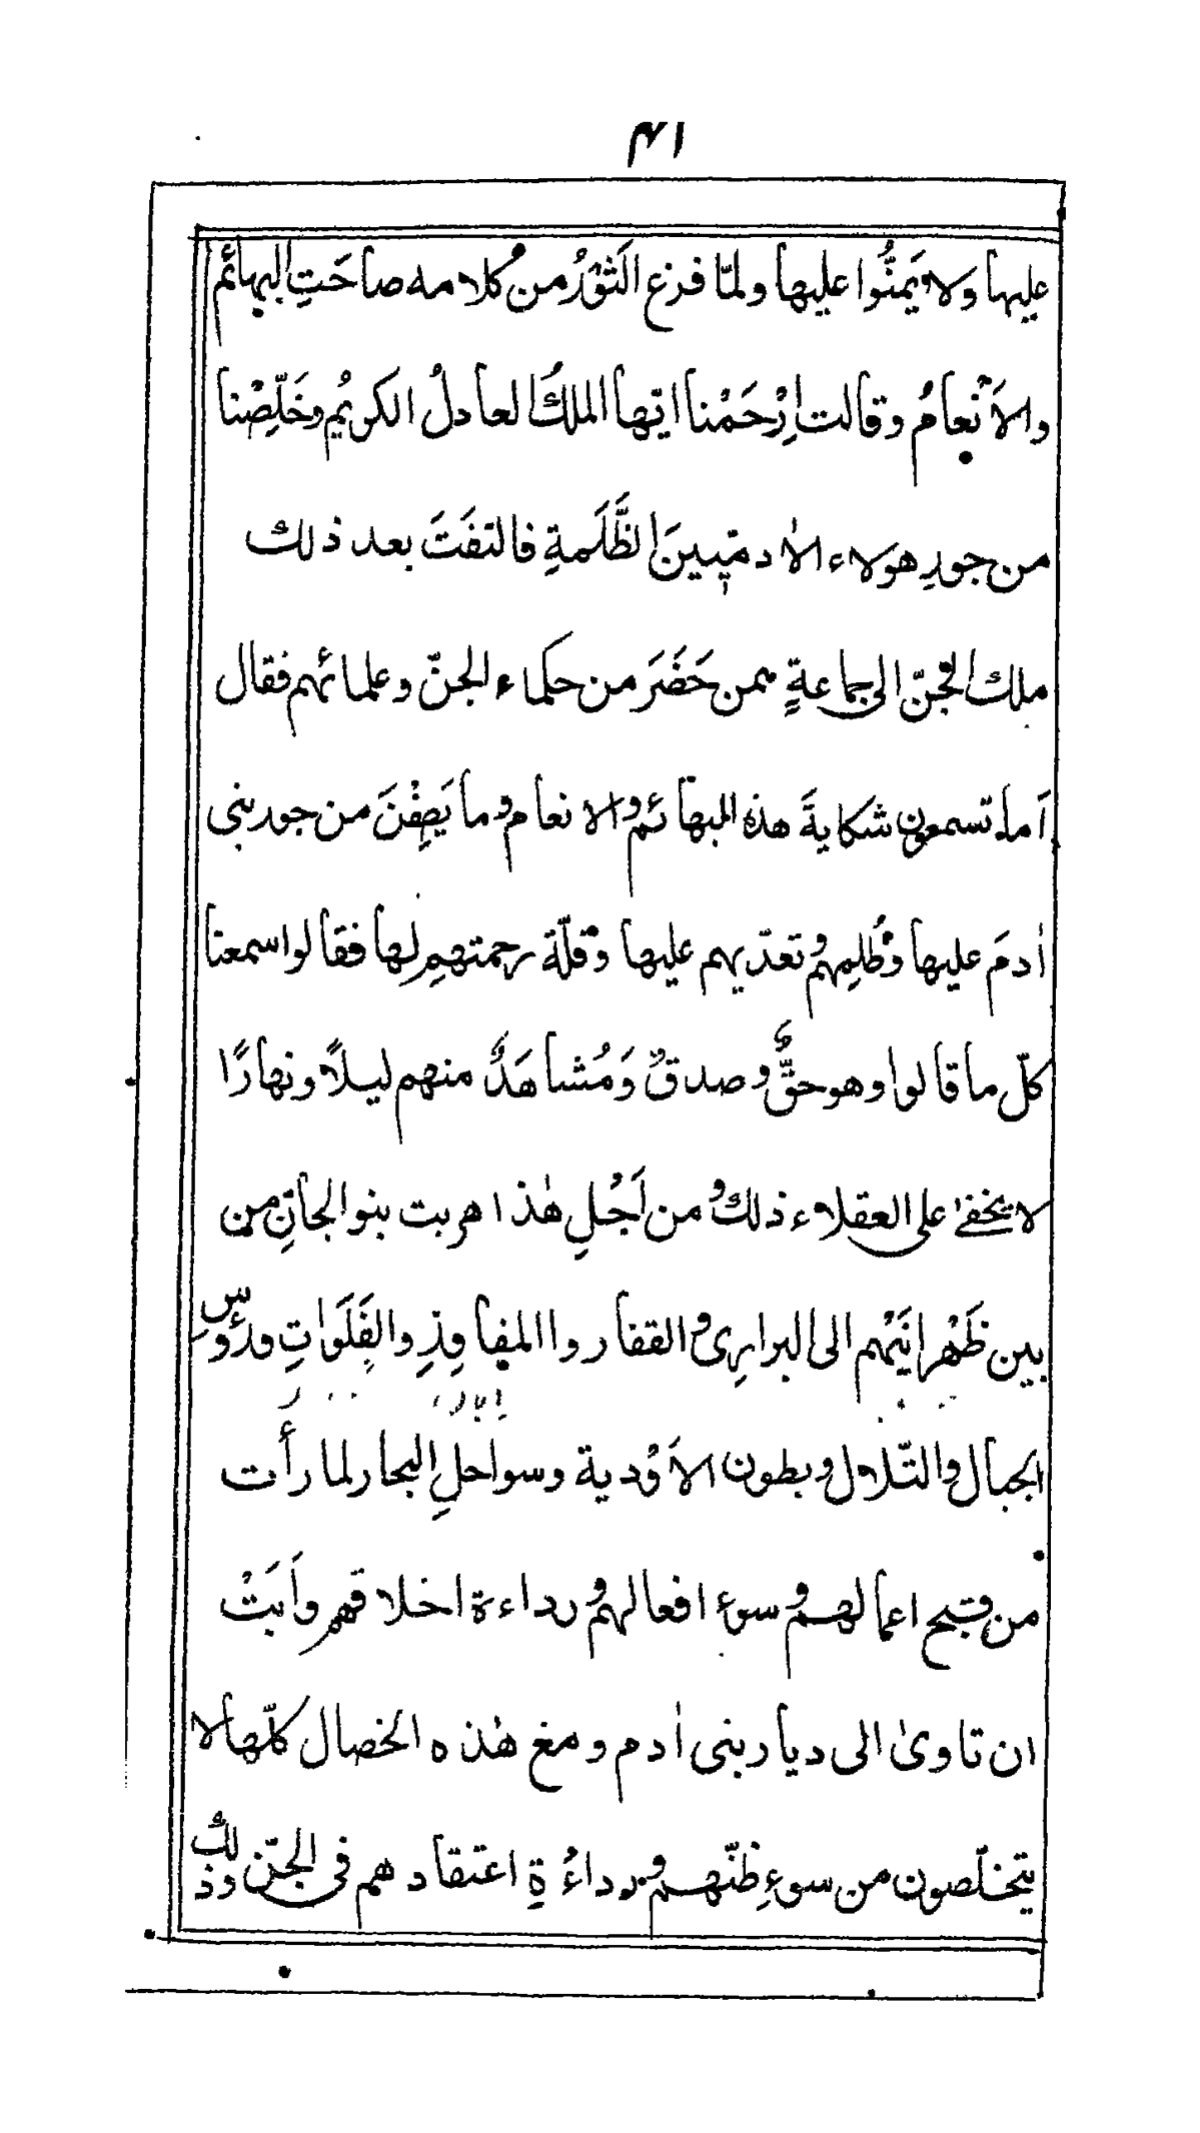 ۴۱
عليها ولا يَمنُّوا عليها ولمّا فرغ الثَورُ من كلامه صاحَتِ البهائم
والاَنْعامُ وقالت اِرْحَمْنا ايّها الملكُ العادلُ الكريمُ وخَلِّصْنا
من جورِ هولاء الاٰدميّينَ الظَّلَمةِ فالتفَتَ بعد ذلك
ملك الجنّ الى جماعةٍ ممن حَضَرَ من حكماء الجنّ وعلمائهم فقال
اَما تسمعون شكايةَ هذه البهائم والانعام وما يَصِفْنَ من جور بنى
اٰدمَ عليها وظُلمِهم وتعدّيهم عليها وقلّة رحمتهم لها فقالوا سمعنا
كلّ ما قالوا وهو حقٌّ وصدقٌ وَمُشاهَدٌ منهم ليلاً ونهارًا
لا يخفىٰ على العقلاء ذلك ومن اَجْلِ هٰذا هربت بنو الجانِّ من
بين ظَهْرانَيْهم الى البرارِى والقفار والمفاوِزِ والفَلَواتِ ورؤسِ
الجبال والتّلال وبطون الاَوْدية وسواحلِ البحار لما رأَت
من قبح اعمالهم وسوء افعالهم ورداءة اخلاقهم واَبَتْ
ان تاوىٰ الى ديار بنى اٰدم ومع هٰذه الخصال كلّها لا
يتخلّصون من سوءِ ظنّهم ورداءُةِ اعتقادهم فى الجنّ وذلك